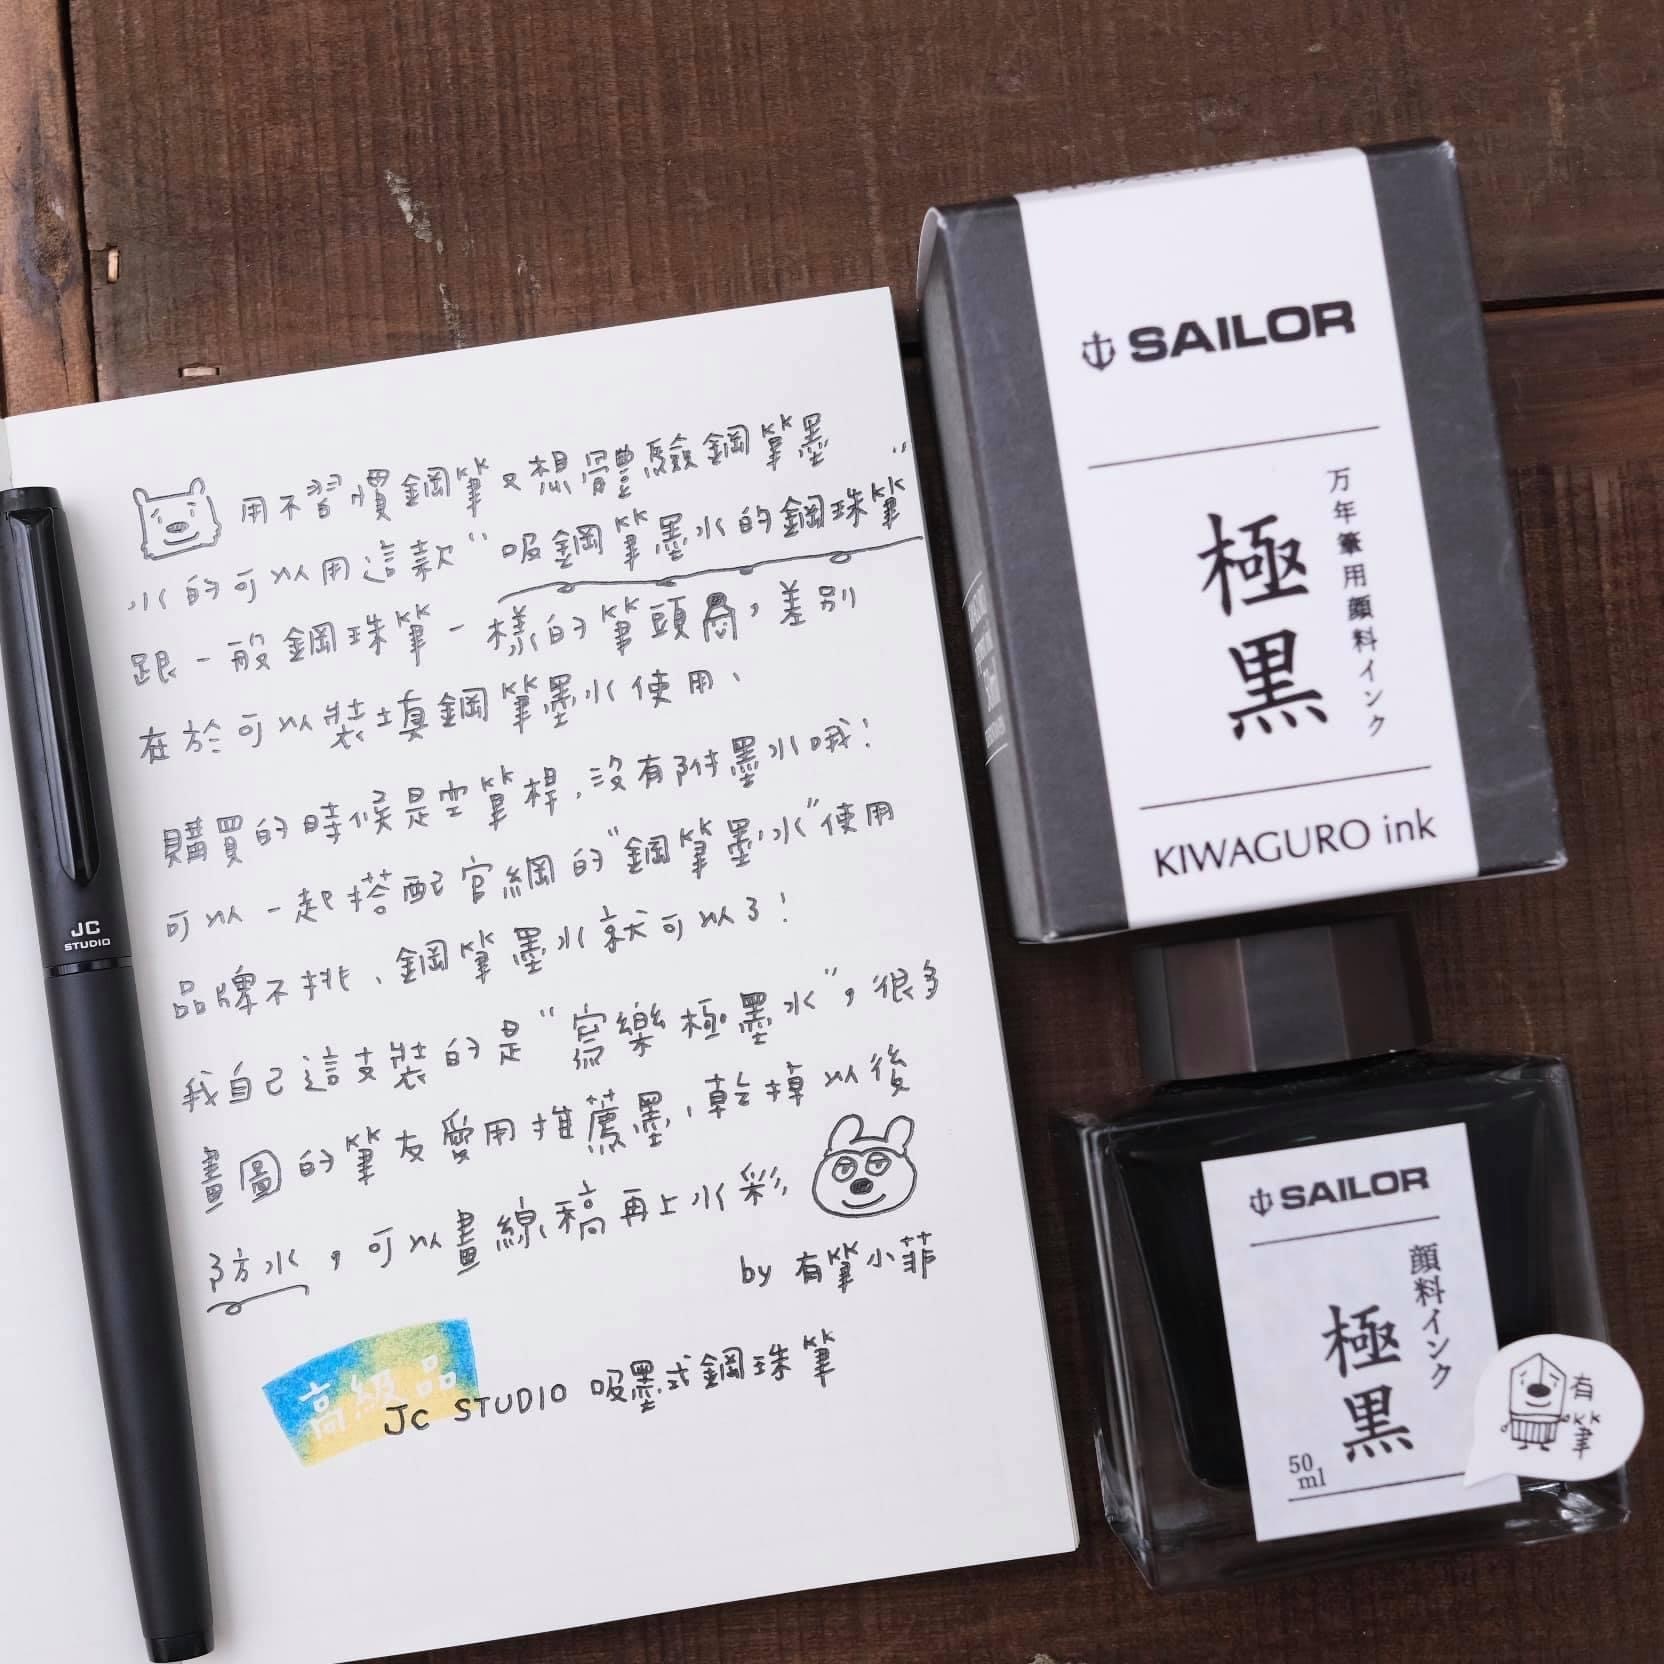 用不習慣鋼筆又想體驗鋼筆墨
水的可以用這款“吸鋼筆墨水的鋼珠筆”
跟一般鋼珠筆一樣的筆頭，差別
在於可以裝填鋼筆墨水使用、
購買的時候是空筆桿，沒有附墨水哦！
可以一起搭配官網的“鋼筆墨水”使用
品牌不挑、鋼筆墨水就可以了！
我自己這支裝的是“寫樂極墨水”，很多
畫圖的筆友愛用推薦墨、乾掉以後
防水，可以畫線稿再上水彩
by 有筆小菲
高級品
JC STUDIO 吸墨式鋼珠筆
JC
STUDIO
SAILOR
万年筆用顔料インク
極黒
KIWAGURO ink
SAILOR
顔料インク
極黒
50
ml
有筆